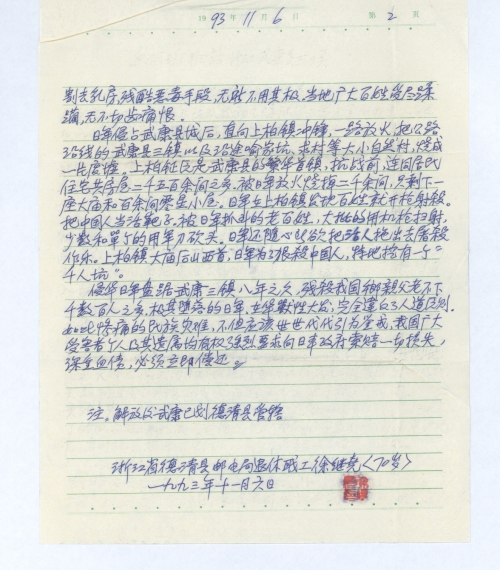 1993年11月6日 第2页
割去乳房,残酷恶毒手段,无所不用其极,当地广大百姓受尽蹂
躏,无不切齿痛恨。
日军侵占武康县城后,直向上柏镇冲锋,一路放火,把公路
沿线的武康县三镇以及沿途
村等大小自然村,烧成
一片废墟。上柏社区是武康县的繁华首镇,抗战前,连同居民
住宅共房屋二千五百余间之多,被日军放火烧掉二千余间,只剩下一
座大庙和百余间零星小屋。日军在上柏镇发现百姓就开枪射杀。
把中国人当活靶子,被日军抓到的老百姓,大批的用机枪扫射,
少数和单个的用军刀砍头。日军还随心所欲把活人拖出去屠杀
作乐。上柏镇大庙后山西首,日军为了狠杀中国人,特地挖有一个“
千人坑”。
侵华日军盘踞武康三镇八年之久,残杀我国乡亲父老不下
千数百人之多,极其堕落的日军,
兽性大发,完全违背了人道原则。
如此惨痛的民族灾难,不但应该世世代代引为鉴戒,我国广大
受害者个人及其遗属均有权强烈要求向日本政府索赔一切损失,
深重血债,必须立即偿还。
注。解放后武康已划德清县管辖
浙江省德清县邮电局退休职工徐继尧〈70岁〉
一九九三年十一月六日